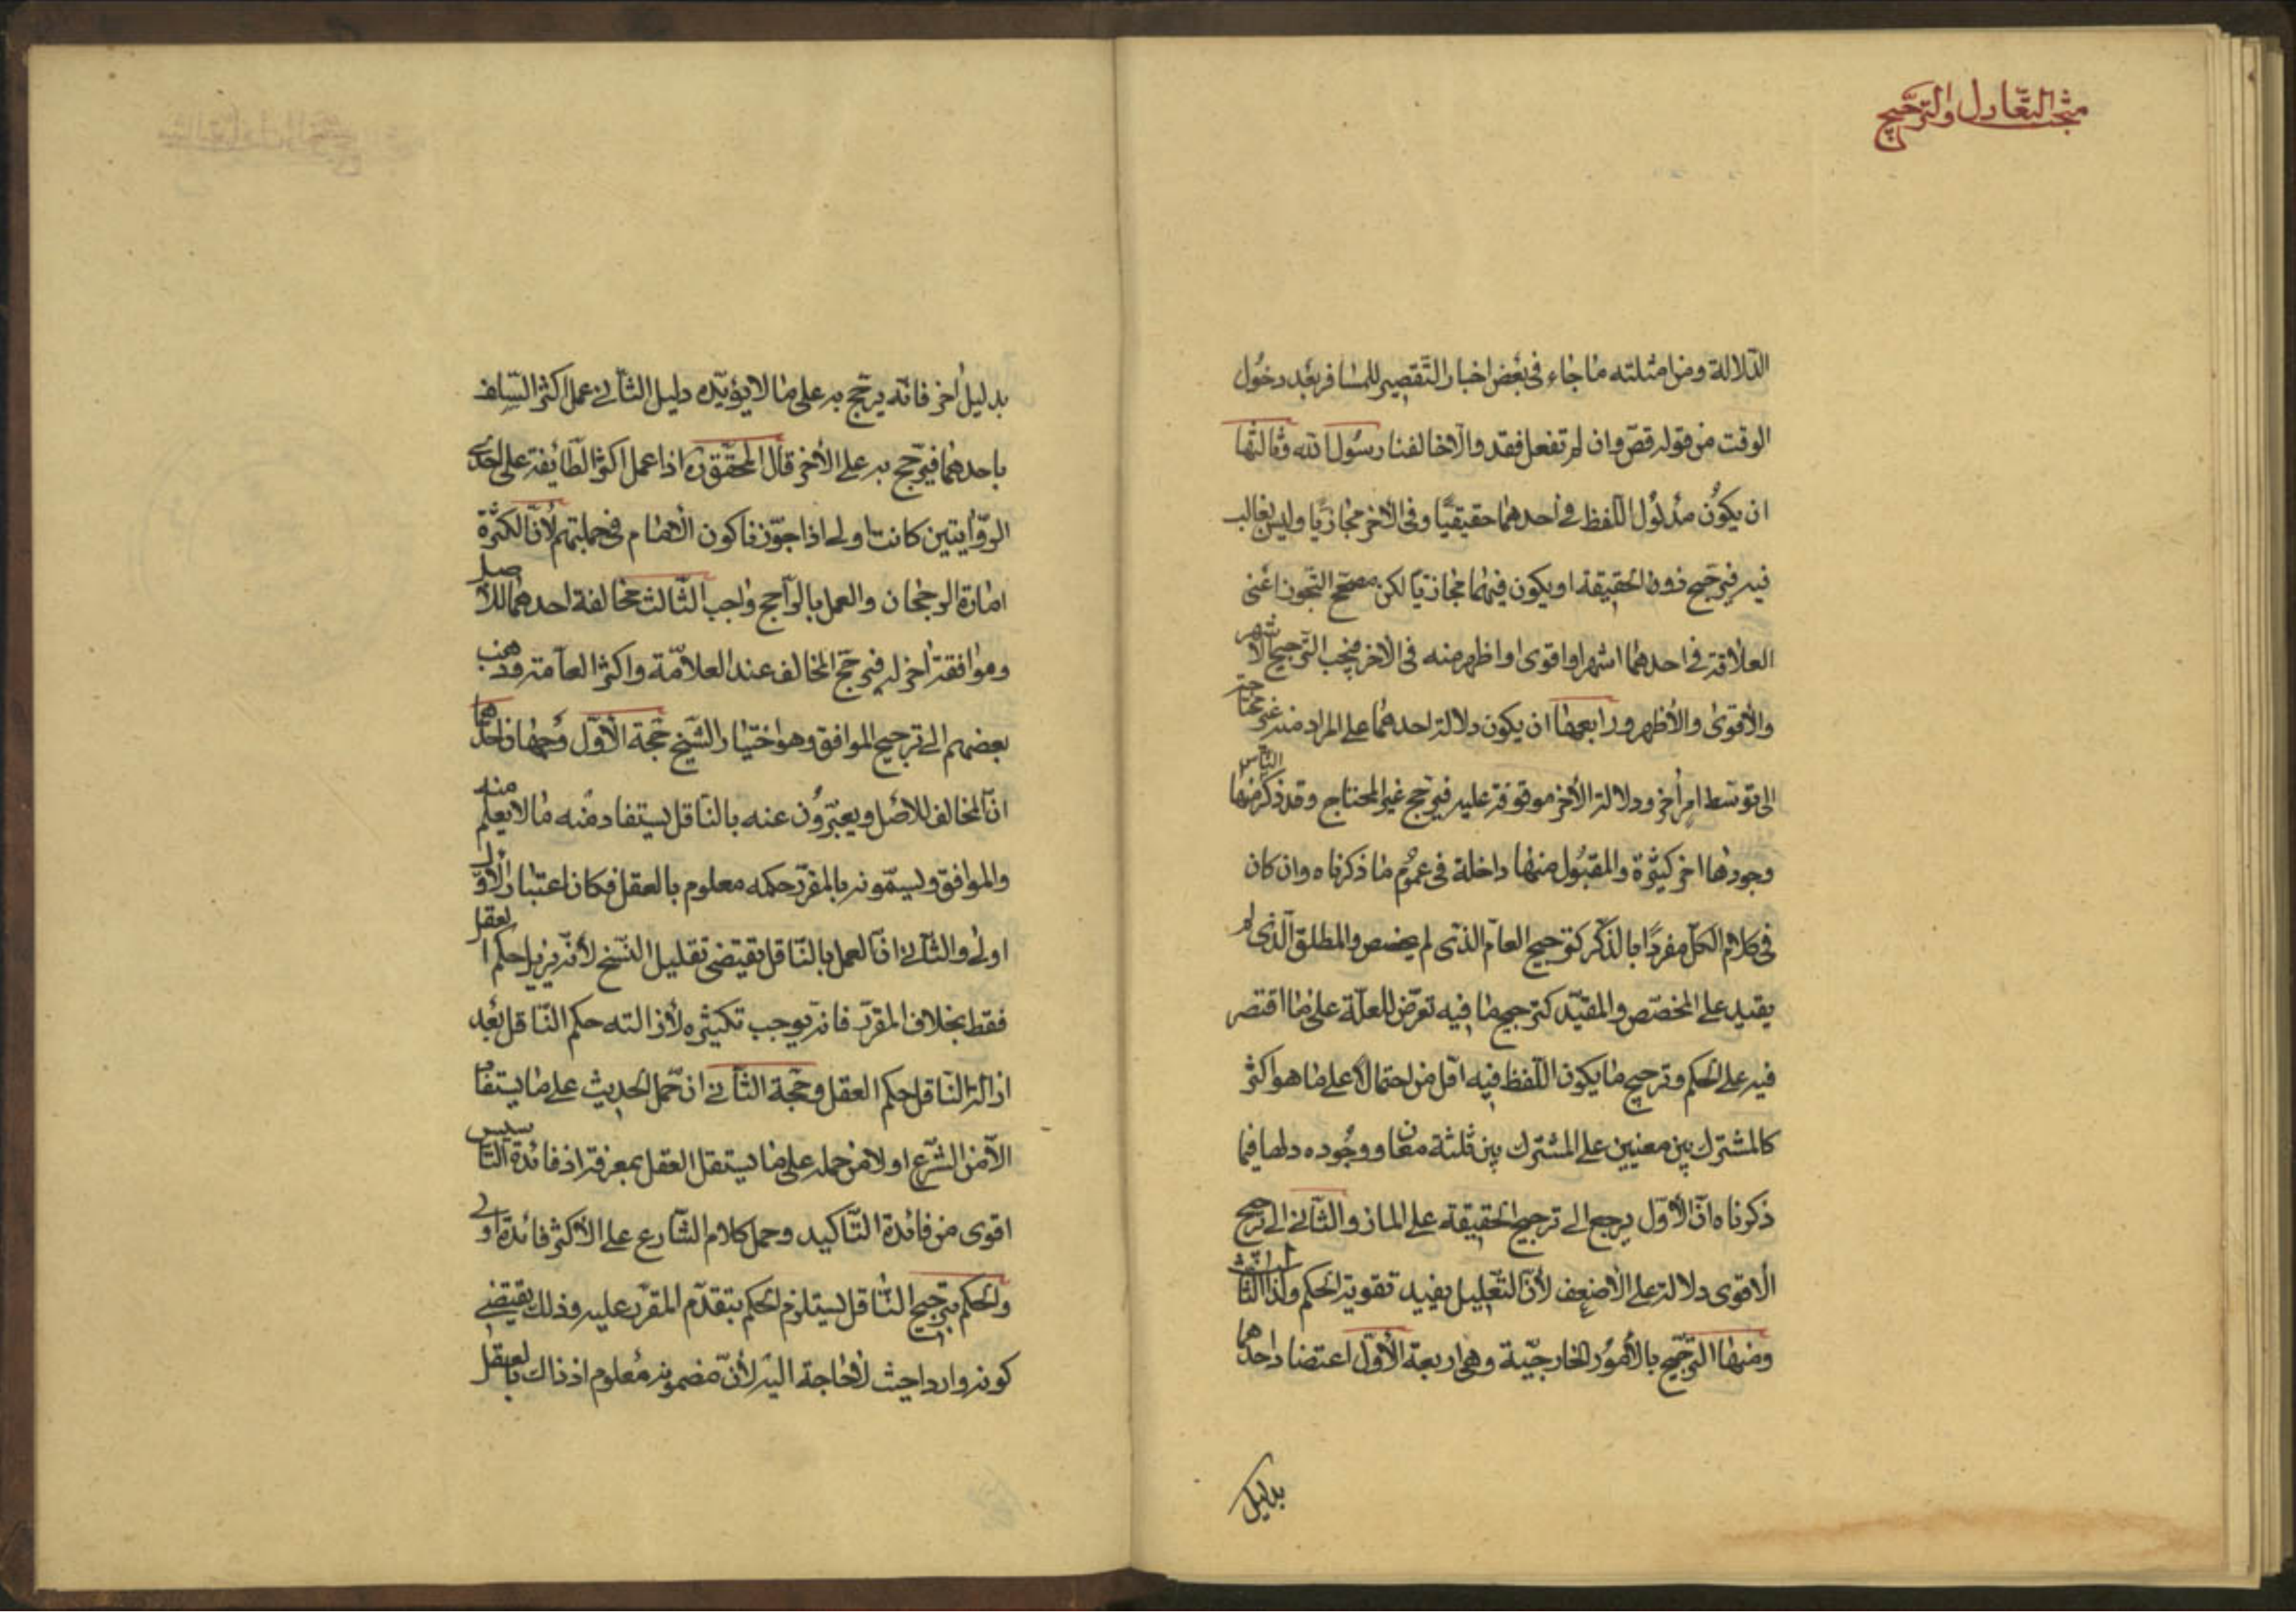 مبحث التعادل والترجیح
الدّلالة ومن امثلته ما جاء فی بعض اخبار التّقصیر للمسافر بعد دخول
الوقت من قوله قصّر وان لم تفعل فقد والله خالفنا رسول الله وثالثها
ان یکون مدلول اللّفظ فی احدهما حقیقیًّا وفی الآخر مجازیًّا ولیس بغالب
فیه فیرجّح ذو الحقیقة او یکون فیهما مجازیًّا لکن مصحّح التّجوز اعنی
العلاقة فی احدهما اشهر او اقوی او اظهر منه فی الآخر فیجب التّرجیح الاشهر
والاقوی والاظهر ورابعها ان یکون دلالة احدهما علی المراد منه غیر محتاجة
الی توسّط امر آخر ودلالة الآخر موقوفة علیه فیرجّح غیر المحتاج وقد ذکر النّاس منها
وجوها اخر کثیرة والمقبول منها داخلة فی عموم ما ذکرناه وان کان
فی کلام الکلّ مفردًا بالذّکر کترجیح العامّ الذی لم یخصص والمطلق الّذی لم
یقید علی المخصّص والمقیّد کترجیح ما فیه تعرّض للعلّة علی ما اقتصر
فیه علی الحکم وترجیح ما یکون اللّفظ فیه اقل من احتمالا علی ما هو اکثر
کالمشترک بین معنیین علی المشترک بین ثلثة معان ووجوده دلها فیما
ذکرناه انّ الاوّل یرجع الی ترجیح الحقیقة علی المجاز والثّانی الی ترجیح
الاقوی دلالة علی الاضعف لانّ التّعلیل یفید تقویة الحکم وکذا الثّالث
ومنها التّرجیح بالامور الخارجیّة وهی اربعة الاوّل اعتضاد احدهما
بدلیل
بدلیل آخر فانّه یرجّح به علی ما لا یؤیّده دلیل الثّانی عمل اکثر السّلف
باحدهما فیرجّح به علی الآخر قال المحقّق ره اذا عمل اکثر الطّایفة علی احدی
الرّوایتین کانت اولی اذا جوّزنا کون الامام فی جملتهم لانّ الکثرة
امارة الرجحان والعمل بالرّاجح واجب الثّالث مخالفة احدهما للاصل
وموافقة آخر له فیرجّح المخالف عند العلاّمة واکثر العامّة وذهب
بعضهم الی ترجیح الموافق وهو اختیار الشّیخ حجّة الاوّل وجهان احدهما
انّ المخالف للاصل ویعبّرون عنه بالنّاقل یستفاد منه ما لا یعلم منه
والموافق ویسمّونه بالمقرّر حکمه معلوم بالعقل فکان اعتبار الاوّل
اولی والثّانی انّ العمل بالنّاقل یقتضی تقلیل النّسخ لانّه یزیل حکم العقل
فقط بخلاف المقرّر فانّه یوجب تکثیره لازالته حکم النّاقل بعد
ازالة النّاقل حکم العقل وحجّة الثّانی انّ حمل الحدیث علی ما یستفاد
الاّ من الشّرع اولا من حمله علی ما یستقل العقل بمعرفته اذ فائدة التّاسیس
اقوی من فائدة التّاکید وحمل کلام الشّارع علی الاکثر فائدة اولی
والحکم بترجیح النّاقل یستلزم الحکم بتقدّم المقرّر علیه وذلک یقتضی
کونه واردا حیث لا حاجة الیه لانّ مضمونه معلوم اذ ذاک بالعقل